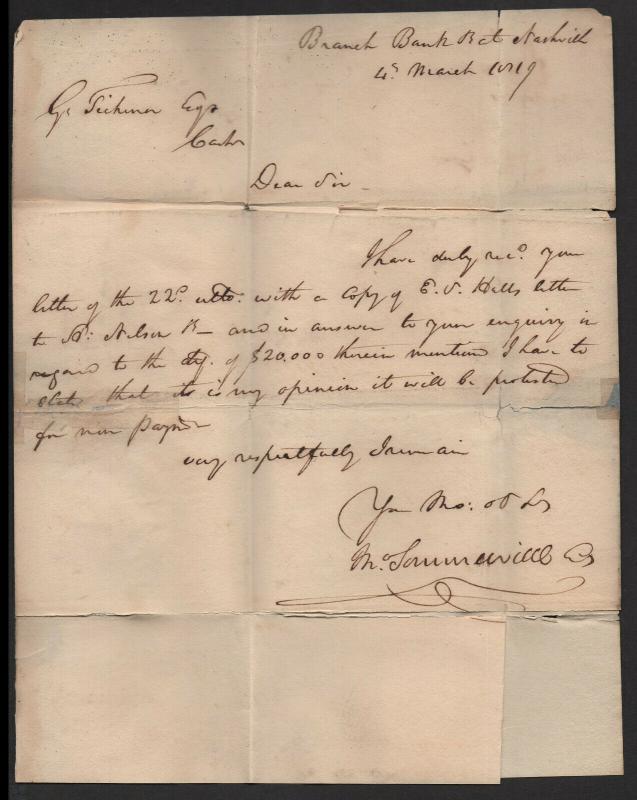 Branch Bank at Nashville
4th March 1819
G. Tichenor Esqr
Cashr
Dear Sir
I have duly recd. your
letter of the 22d. ulto. with a copy of E. S. Halls letter
to Nelson and in answer to your enquiry in
regard to the dft. of $20,000 therein mentiond I have to
state that it is my opinion it will be protested
for non paymt
very respectfully I remain
Yr. Mo: ob St
Sommerville